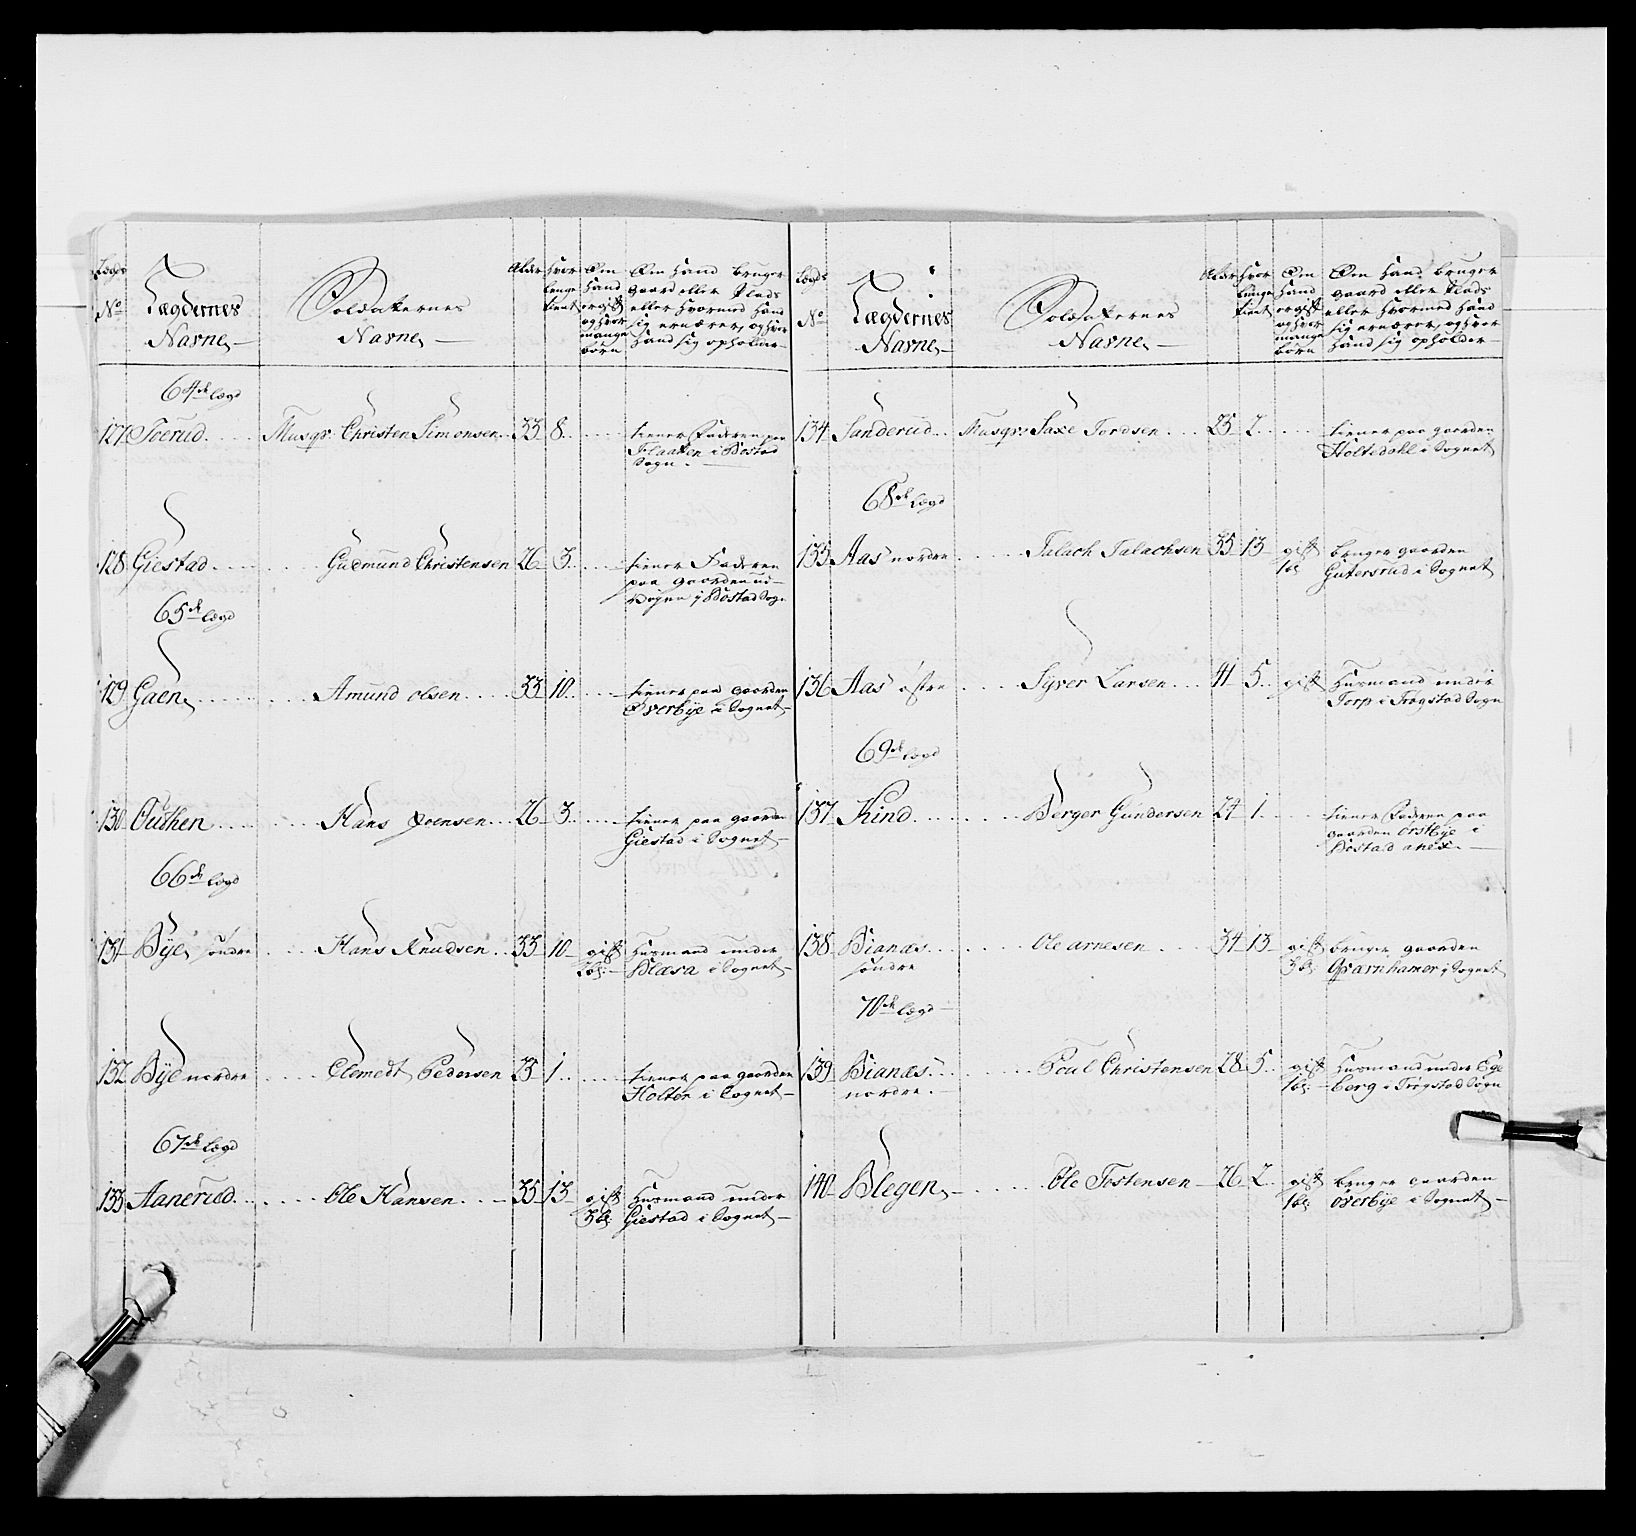 Lægds
No
Lægdernes
Navne
Soldaternes
Navne
Alder
Hvor
længe
tient
Om
Hand
er gift
og hvor
mange
børn
Om Hand bruger
Gaard eller Plads
eller hvormed Hand
sig ernærer, og hvor
Hand sig opholder
64de lægd
127 Toerud Musqr Christen Simonsen 33 8 tiener Faderen paa
Flaaten i Bostad
Sogn
128 Giestad Gudmund Christensen 26 3 tiener Faderen
paa Gaarden
i Bostad Sogn
65de lægd
129 Gaen Amund Olsen 33 10 tiener paa Gaarden
Øverbye i Sognet
130 Outhen Hans Joensen 26 3 tiener paa gaarden
Giestad i Sognet
66de lægd
131 Bye søndre Hans Knudsen 33 10 gift Husmand under
Blæsa i Sognet
132 Bye nordre Clemedt Pedersen 23 1 tiener paa gaarden
Holter i Sognet
67de lægd
133 Aanerud Ole Hansen 35 13 gift Husmand under
3 b: Giestad i Sognet
Lægds
No
Lægdernes
Navne
Soldaternes
Navne
Alder
Hvor
længe
tient
Om
Hand
er gift
og hvor
mange
børn
Om Hand bruger
Gaard eller Plads
eller hvormed Hand
sig ernærer, og hvor
Hand sig opholder
134 Sanderud Musqr Saxe Tordsen 25 2 tiener paa gaarden
Holtedahl i Sognet
68de lægd
135 Aas nordre Talach Talachsen 35 13 gift bruger gaarden
1 b: Gutersrud i Sognet
136 Aas østre Syver Larsen 41 5 gift Husmand under
Torp i Trøgstad Sogn
69de lægd
137 Kind Berger Gundersen 24 1 tiener Faderen paa
gaarden Ørstbye i
Bostad anex
138 Bianæs Ole Arnesen 34 13 gift bruger gaarden
søndre 3 b: Qvarnhamer i Sognet
70de lægd
139 Bianæs Poul Christensen 28 5 gift Husmand under Ege
nordre 1 b: berg i Trøgstad Sogn
140 Blegen Ole Tostensen 26 2 gift bruger gaarden
1 b: Øverbye i Sognet